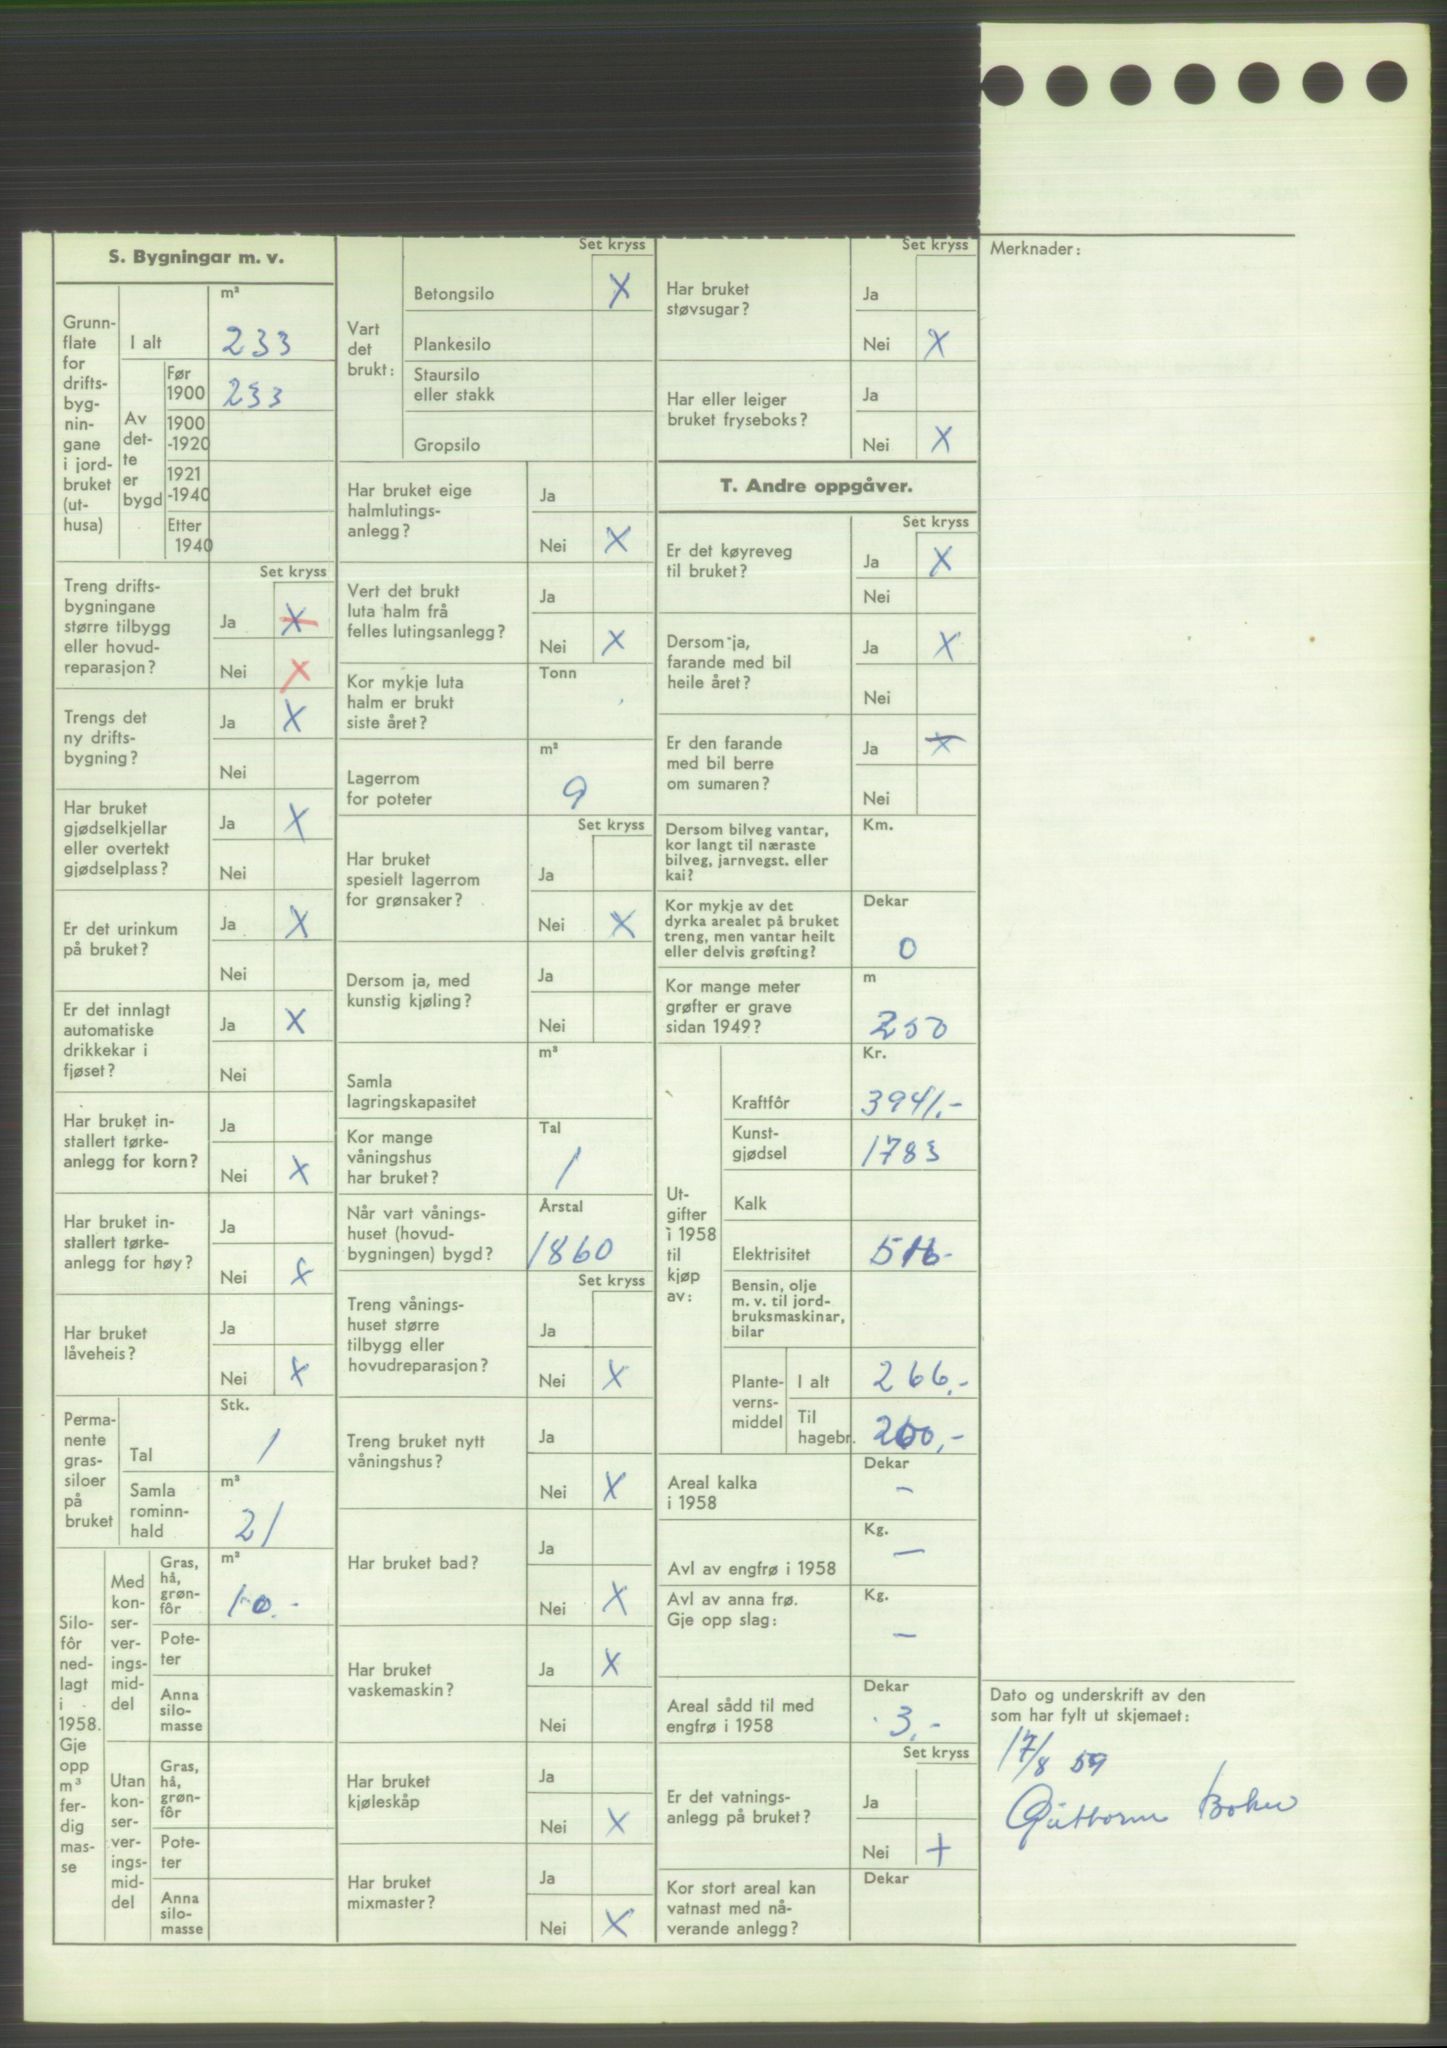 S. Bygningar m. v.
Grunn-
flate
for
drifts-
byg-
nin-
gane
i jord-
bruket
(ut-
husa)
m²
I alt
233
Av
det-
te
er
bygd
Før
1900
233
1900
-1920
1921
-1940
Etter
1940
Set kryss
Treng drifts-
bygningane
større tilbygg
eller hovud-
reparasjon?
Ja X
Nei X
Trengs det
ny drifts-
bygning?
Ja X
Nei
Har bruket
gjødselkjellar
eller overtekt
gjødselplass?
Ja X
Nei
Er det urinkum
på bruket?
Ja X
Nei
Er det innlagt
automatiske
drikkekar i
fjøset?
Ja X
Nei
Har bruket in-
stallert tørke-
anlegg for korn?
Ja
Nei X
Har bruket in-
stallert tørke-
anlegg for høy?
Ja
Nei X
Har bruket
låveheis?
Ja
Nei X
Perma-
nente
gras-
siloer
på
bruket
Stk.
Tal
1
m³
Samla
rominn-
hald
21
Silo-
fôr
ned-
lagt
i
1958.
Gje
opp
m³
fer-
dig
mas-
se
Med
kon-
ser-
ver-
ings-
mid-
del
Gras,
hå,
grøn-
fôr
m³
10.-
Pote-
ter
Anna
silo-
masse
Utan
kon-
ser-
ver-
ings-
mid-
del
Gras,
hå,
grøn-
fôr
Pote-
ter
Anna
silo-
masse
Set kryss
Vart
det
brukt:
Betongsilo X
Plankesilo
Staursilo
eller stakk
Gropsilo
Har bruket eige
halmlutings-
anlegg?
Ja
Nei X
Vert det brukt
luta halm frå
felles lutingsanlegg?
Ja
Nei X
Kor mykje luta
halm er brukt
siste året?
Tonn
Lagerrom
for poteter
m³
9
Set kryss
Har bruket
spesielt lagerrom
for grønsaker?
Ja
Nei X
Dersom ja, med
kunstig kjøling?
Ja
Nei
Samla
lagringskapasitet
m³
Kor mange
våningshus
har bruket?
Tal
1
Når vart vånings-
huset (hovud-
bygningen) bygd?
Årstal
1860
Set kryss
Treng vånings-
huset større
tilbygg eller
hovudreparasjon?
Ja
Nei X
Treng bruket nytt
våningshus?
Ja
Nei X
Har bruket bad?
Ja
Nei X
Har bruket
vaskemaskin?
Ja X
Nei
Har bruket
kjøleskåp
Ja
Nei X
Har bruket
mixmaster?
Ja
Nei X
Set kryss
Har bruket
støvsugar?
Ja
Nei X
Har eller leiger
bruket fryseboks?
Ja
Nei X
T. Andre oppgåver.
Set kryss
Er det køyreveg
til bruket?
Ja X
Nei
Dersom ja,
farande med bil
heile året?
Ja X
Nei
Er den farande
med bil berre
om sumaren?
Ja X
Nei
Dersom bilveg vantar,
kor langt til næraste
bilveg, jarnvegst. eller
kai?
Km.
Kor mykje av det
dyrka arealet på bruket
treng, men vantar heilt
eller delvis grøfting?
Dekar
0
Kor mange meter
grøfter er grave
sidan 1949?
m
250
Ut-
gifter
i 1958
til
kjøp
av:
Kr.
Kraftfôr
3941.-
Kunst-
gjødsel
1783
Kalk
Elektrisitet
516-
Bensin, olje
m. v. til jord-
bruksmaskinar,
bilar
Plante-
verns-
middel
I alt
266.-
Til
hagebr.
200.-
Areal kalka
i 1958
Dekar
-
Avl av engfrø i 1958
Kg.
-
Avl av anna frø.
Gje opp slag:
Kg.
-
Areal sådd til med
engfrø i 1958
Dekar
3.-
Set kryss
Er det vatnings-
anlegg på bruket?
Ja
Nei +
Kor stort areal kan
vatnast med nå-
verande anlegg?
Dekar
Merknader:
Dato og underskrift av den
som har fylt ut skjemaet:
17/8 59